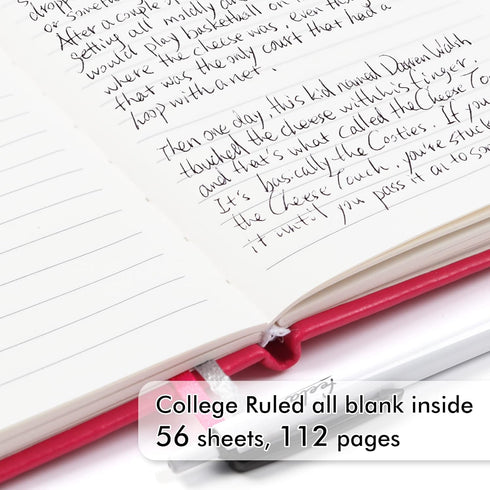 dropp
or somethin
After a couple s
getting all moldy an
would play basketball on
where the cheese was, even tho
that was the only court that had a
hoop with a net.
Then one day, this kid named Darren Walsh
touched the cheese with his finger,
and that's what called the Cheese Tou
It's basically the Cooties. If you
the Cheese Touch, you're stuck
it until you pass it on to so
College Ruled all blank inside
56 sheets, 112 pages